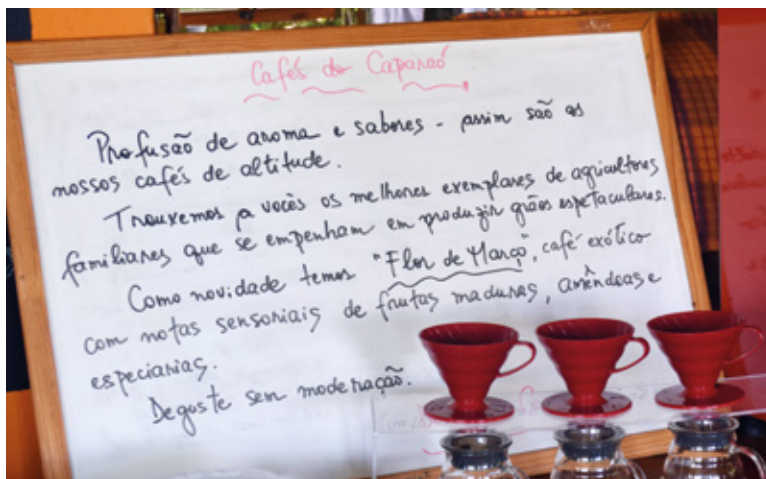 Cafés do Caparaó
Profusão de aroma e sabores - assim são os
nossos cafés de altitude.
Trouxemos a vocês os melhores exemplares de agricultores
familiares que se empenham em produzir grãos espetaculares.
Como novidade temos "Flor de Março", café exótico
com notas sensoriais de frutas maduras, amêndoas e
especiarias.
Deguste sem moderação.